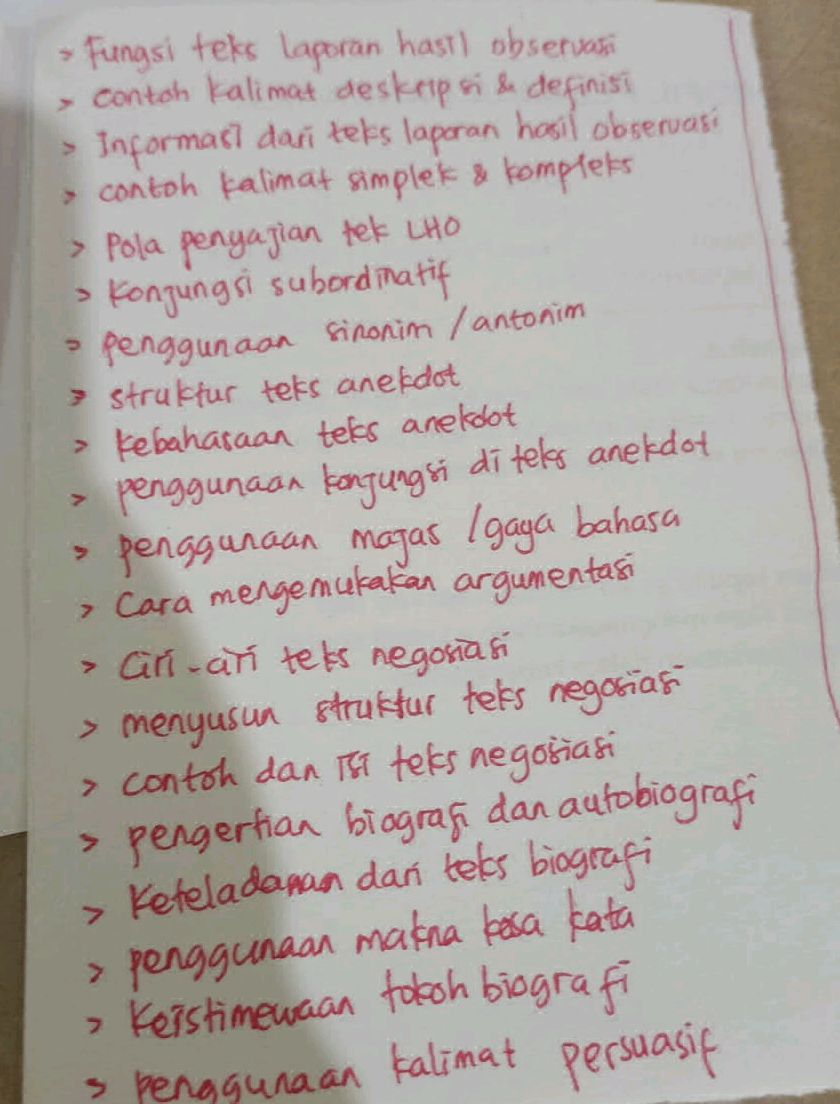 > Fungsi teks laporan hasil observasi
> contoh kalimat deskripsi & definisi
> Informasi dari teks laporan hasil observasi
> contoh kalimat simplek & kompleks
> Pola penyajian tek LHO
> Konjungsi subordinatif
> penggunaan sinonim / antonim
> struktur teks anekdot
> kebahasaan teks anekdot
> penggunaan konjungsi di teks anekdot
> penggunaan majas / gaya bahasa
> Cara mengemukakan argumentasi
> Ciri-ciri teks negosiasi
> menyusun struktur teks negosiasi
> contoh dan isi teks negosiasi
> pengertian biografi dan autobiografi
> Keteladanan dari teks biografi
> penggunaan makna kosa kata
> Keistimewaan tokoh biografi
> penggunaan kalimat persuasif